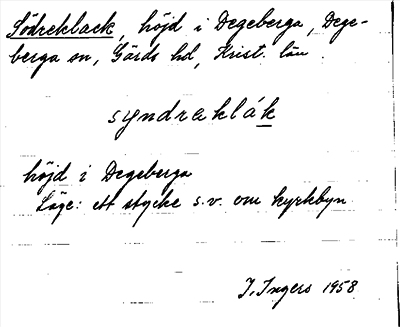 Södreklack, höjd i Degeberga, Dege-
berga sn, Gärds hd, Krist. län.
syndraklák
höjd i Degeberga
Läge: ett stycke s.v. om kyrkbyn.
I. Ingers 1958